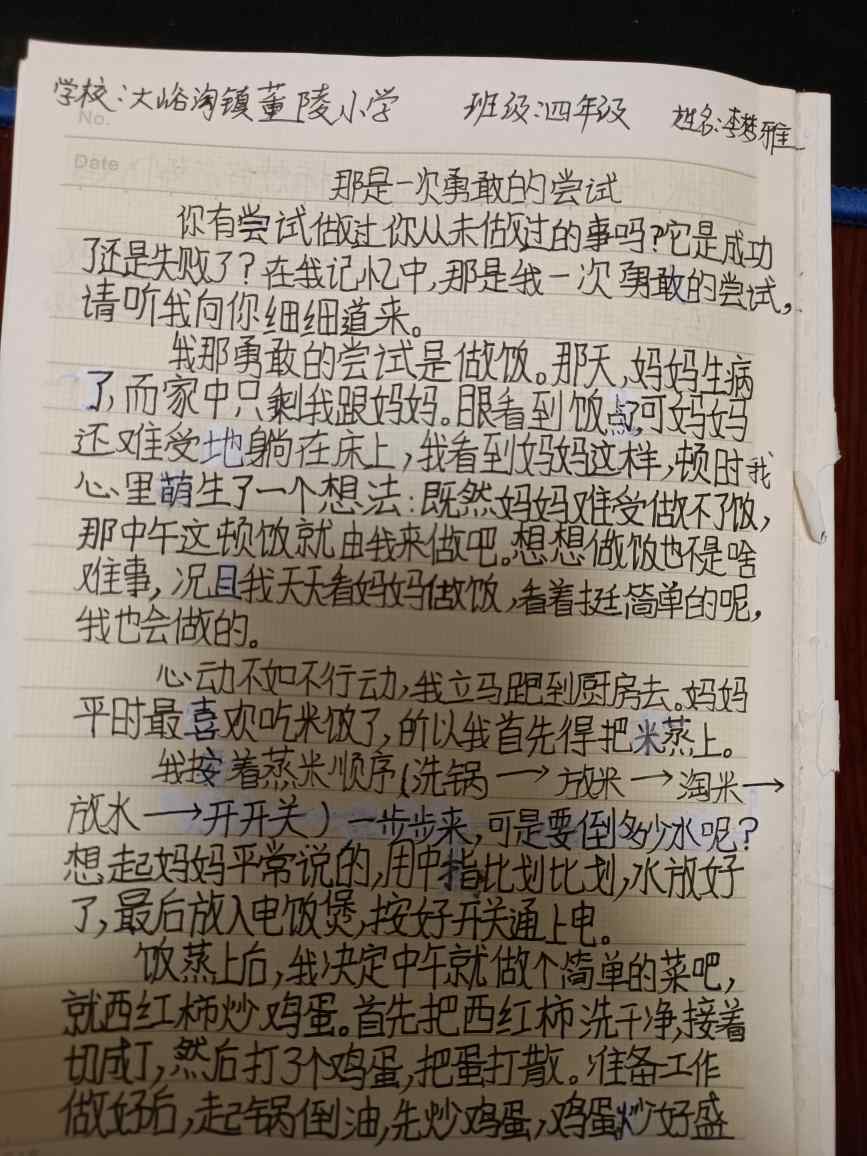 学校:大峪沟镇董陵小学 班级:四年级 姓名:李梦雅
No.
Date
那是一次勇敢的尝试
你有尝试做过你从未做过的事吗?它是成功
了还是失败了?在我记忆中,那是我一次勇敢的尝试,
请听我向你细细道来。
我那勇敢的尝试是做饭。那天,妈妈生病
了,而家中只剩我跟妈妈。眼看到饭点了,可妈妈
还难受地躺在床上,我看到妈妈这样,顿时我
心里萌生了一个想法:既然妈妈难受做不了饭,
那中午这顿饭就由我来做吧。想想做饭也不是啥
难事,况且我天天看妈妈做饭,看着挺简单的呢,
我也会做的。
心动不如不行动,我立马跑到厨房去。妈妈
平时最喜欢吃米饭了,所以我首先得把米蒸上。
我按着蒸米顺序(洗锅→放米→淘米→
放水→开开关)一步步来,可是要倒多少水呢?
想起妈妈平常说的,用中指比划比划,水放好
了,最后放入电饭煲,按好开关通上电。
饭蒸上后,我决定中午就做个简单的菜吧,
就西红柿炒鸡蛋。首先把西红柿洗干净,接着
切成丁,然后打3个鸡蛋,把蛋打散。准备工作
做好后,起锅倒油,先炒鸡蛋,鸡蛋炒好盛